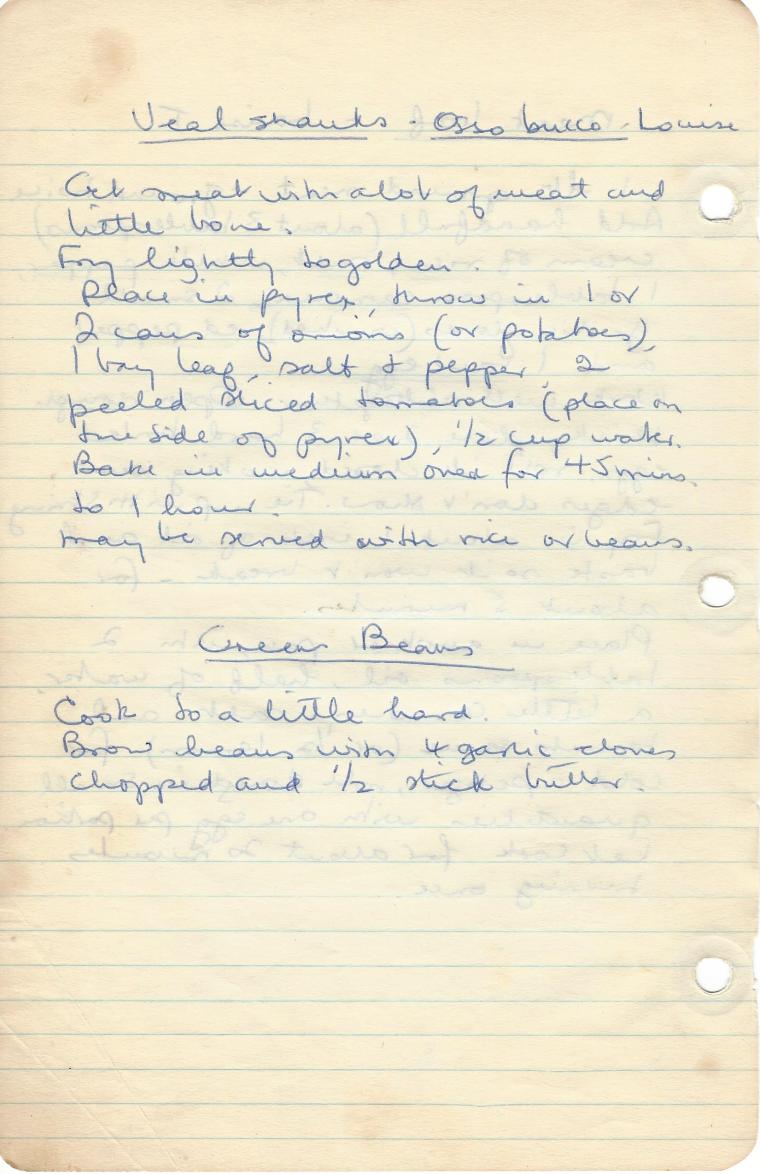 Veal shanks - Osso bucco - Louise
Get meat with a lot of meat and
little bone.
Fry lightly to golden.
Place in pyrex, throw in 1 or
2 cans of onions (or potatoes),
1 bay leaf, salt & pepper, 2
peeled sliced tomatoes (place on
the side of pyrex), 1/2 cup water.
Bake in medium oven for 45 mins.
to 1 hour.
may be served with rice or beans.
Green Beans
Cook to a little hard.
Brow beans with 4 garlic cloves
chopped and 1/2 stick butter.